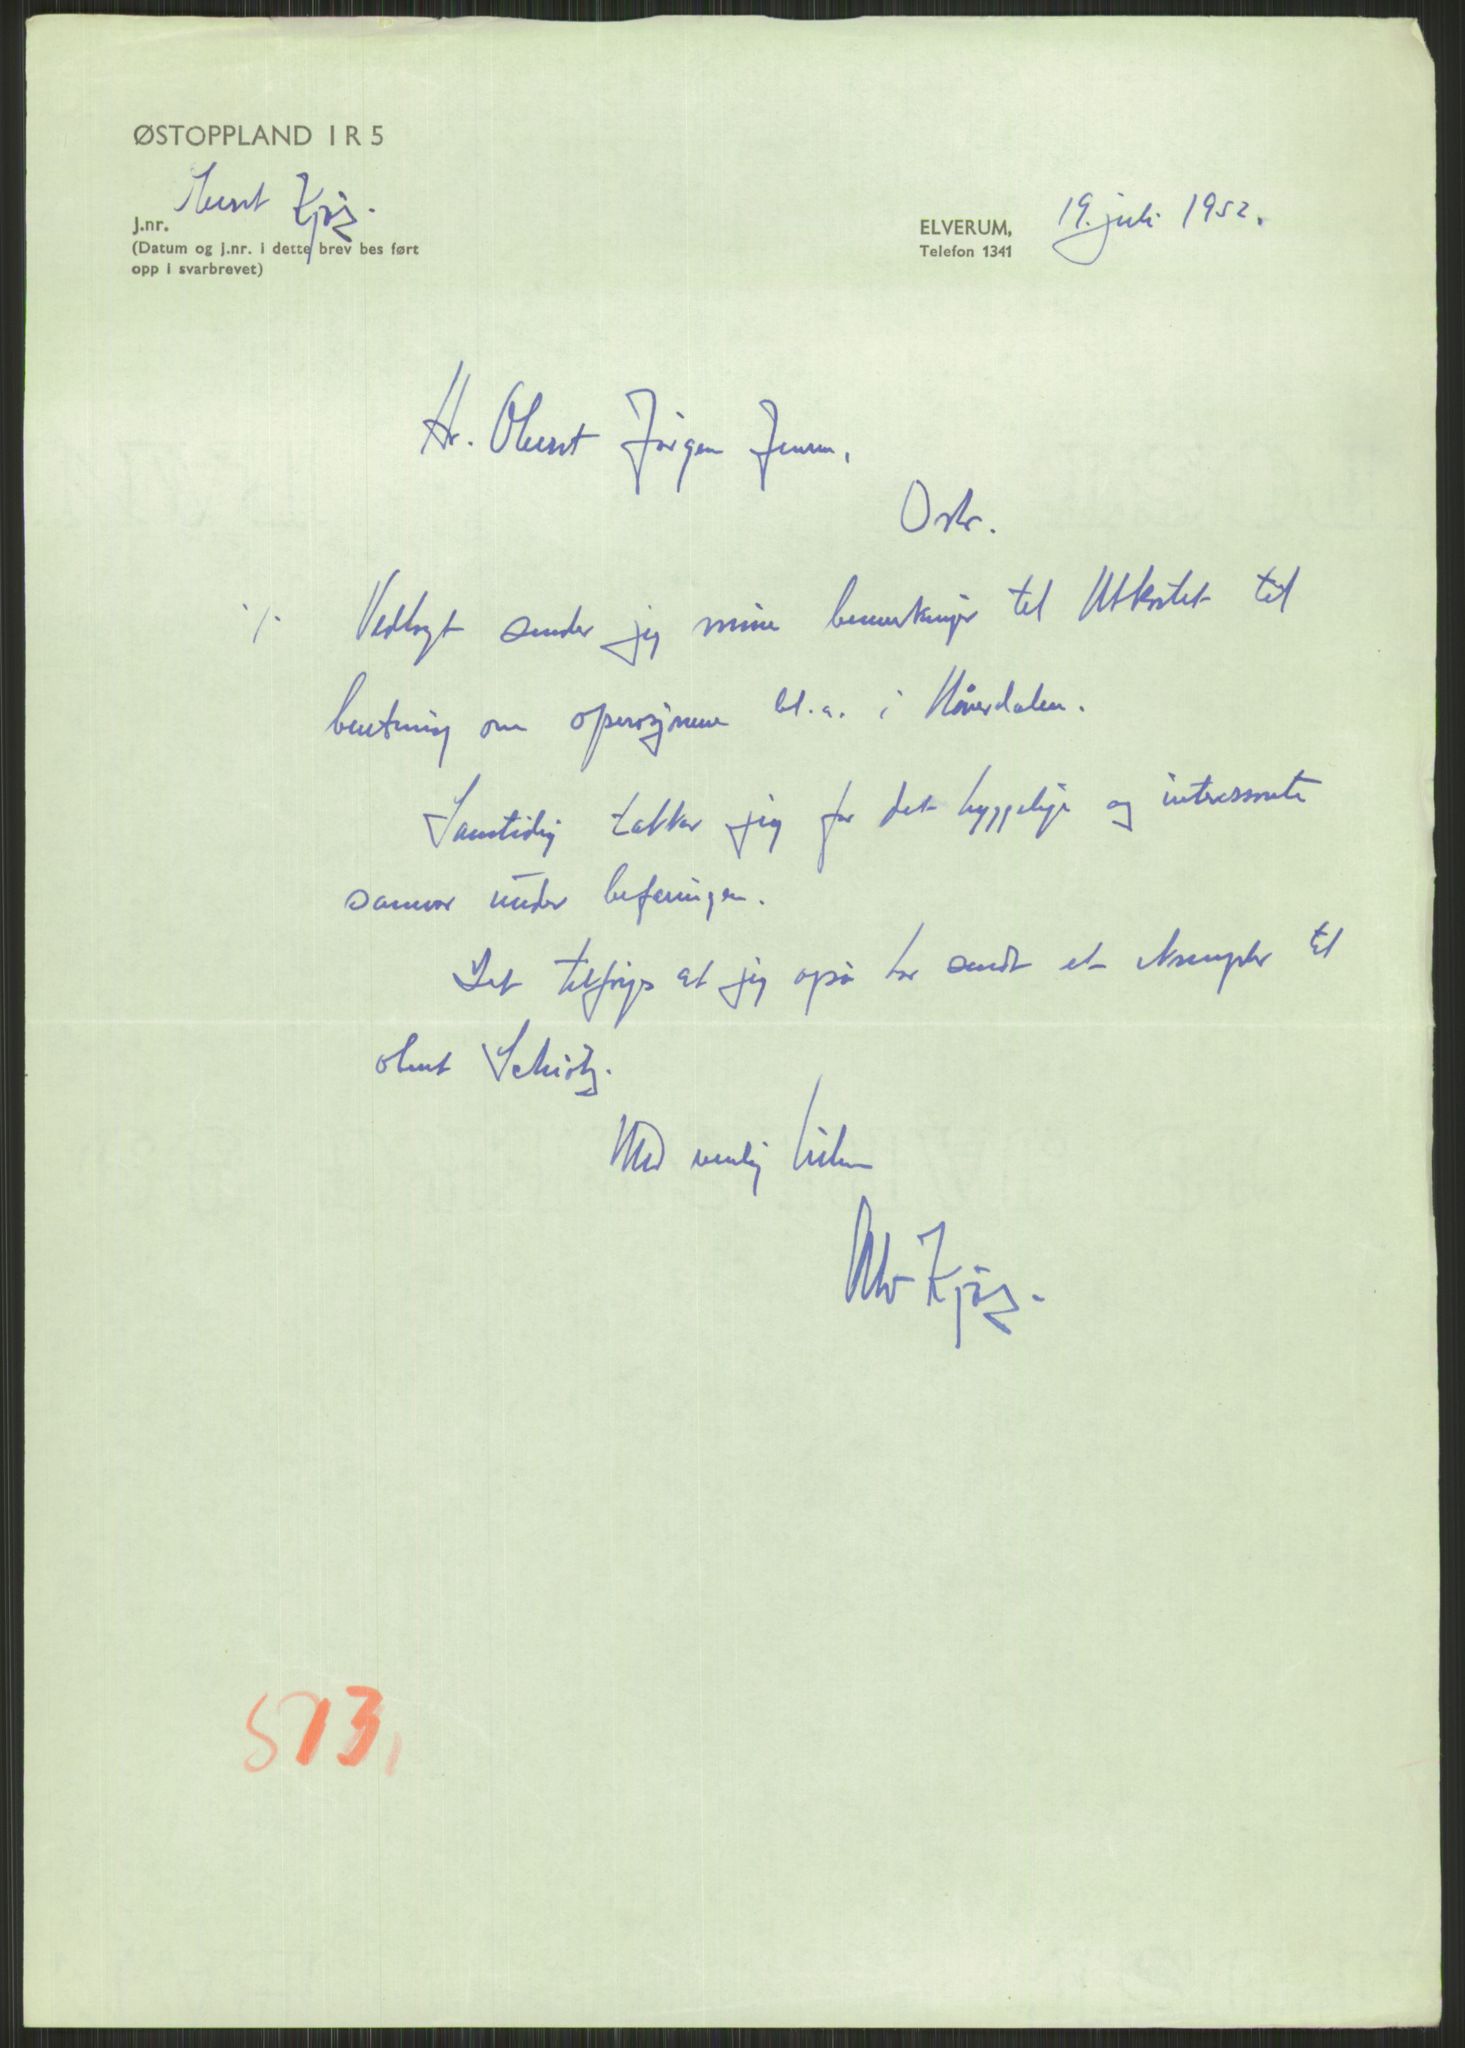 ØSTOPPLAND IR 5
Oberst Kjøs.
J.nr.
(Datum og j.nr. i dette brev bes ført
opp i svarbrevet)
ELVERUM, 19. juli 1952.
Telefon 1341
Hr. Oberst Jörgen Jensen,
Oslo.
·/· Vedlagt sender jeg mine bemerkninger til Utkastet til
beretning om operasjonene bl.a. i Måverdalen.
Samtidig takker jeg for det hyggelige og interessante
samvær under befaringen.
Det tilföyes at jeg også har sendt et eksemplar til
oberst Schiötz.
Med vennlig hilsen
Kjös.
513,